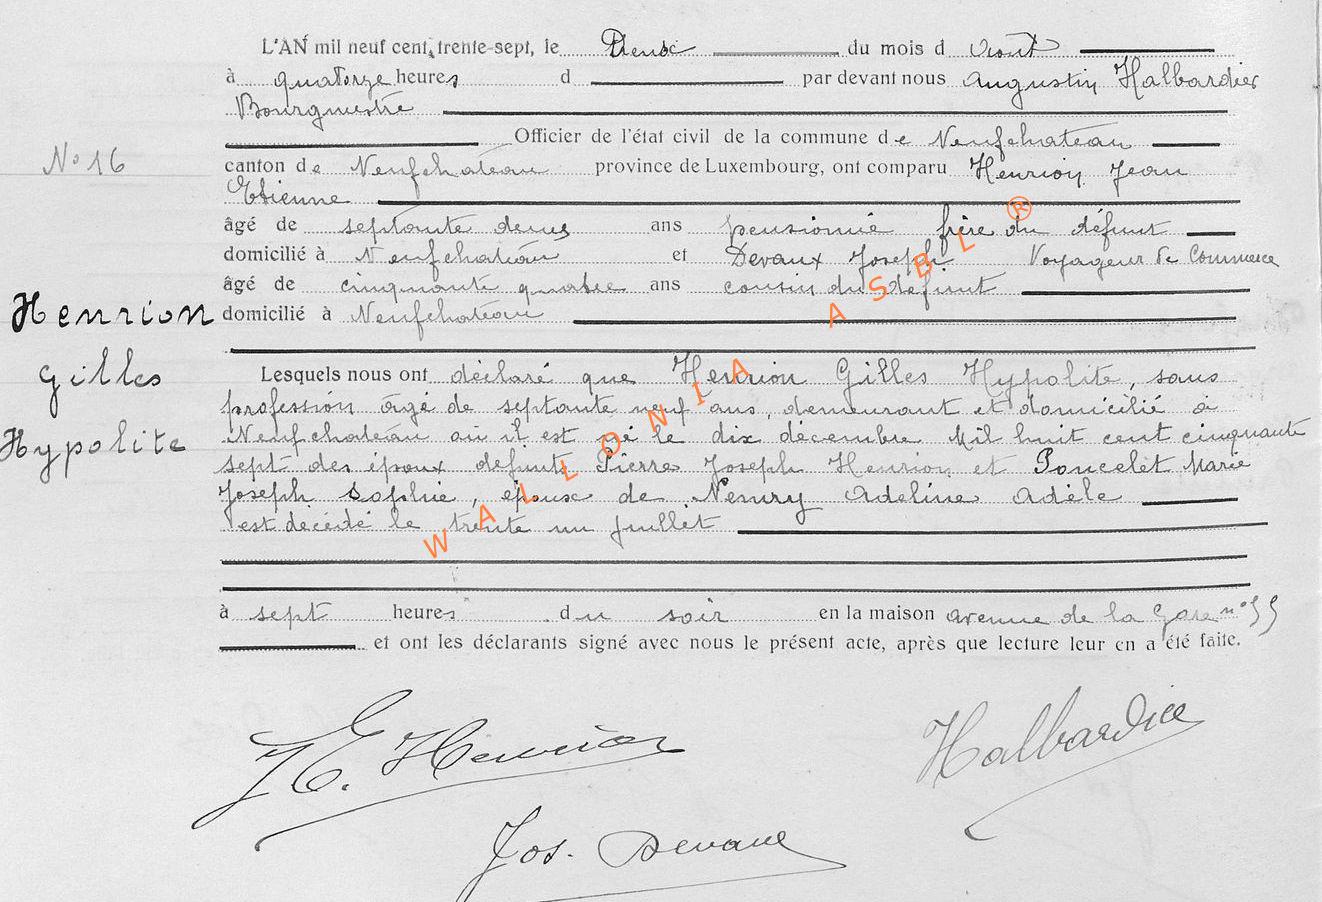 L'AN mil neuf cent trente-sept, le Deux du mois d Août
à quatorze heures d par devant nous Augustin Halbardier
Bourgmestre
Officier de l'état civil de la commune de Neufchateau
N° 16
canton de Neufchateau province de Luxembourg, ont comparu Henrion Jean
Etienne
âgé de septante deux ans pensionné frère du défunt
domicilié à Neufchateau et Devaux Joseph Voyageur de Commerce
âgé de cinquante quatre ans cousin du defunt
domicilié à Neufchateau
Henrion
Gilles
Hypolite
Lesquels nous ont déclaré que Henrion Gilles Hypolite, sans
profession âgé de septante neuf ans, demeurant et domicilié à
Neufchateau où il est né le dix décembre Mil huit cent cinquante
sept des époux defunts Pierre Joseph Henrion et Poncelet Marie
Joseph Sophie, époux de Nemry Adeline Adèle
est décédé le trente un juillet
à sept heures du soir en la maison avenue de la Gare n° 55
et ont les déclarants signé avec nous le présent acte, après que lecture leur en a été faite.
J E. Henrion
Halbardier
Jos. Devaux
WALLONIA ASBL ®